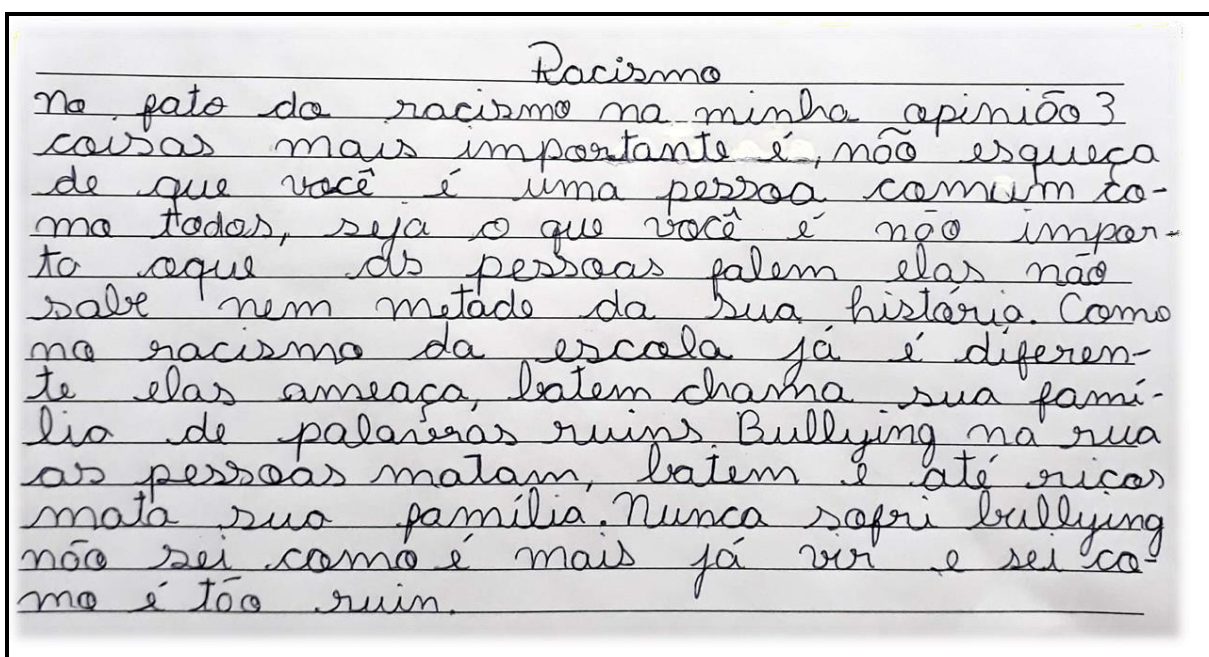 Racismo
No fato do racismo na minha opinião 3
coisas mais importante é, não esqueça
de que você é uma pessoa comum co-
mo todos, seja o que você é não impor-
ta oque as pessoas falem elas não
sabe nem metade da sua história. Como
no racismo da escola já é diferen-
te elas ameaça, batem chama sua famí-
lia de palavras ruins. Bullying na rua
as pessoas matam, batem e até ricos
mata sua família. Nunca sofri bullying
não sei como é mais já vir e sei co-
mo é tão ruin.